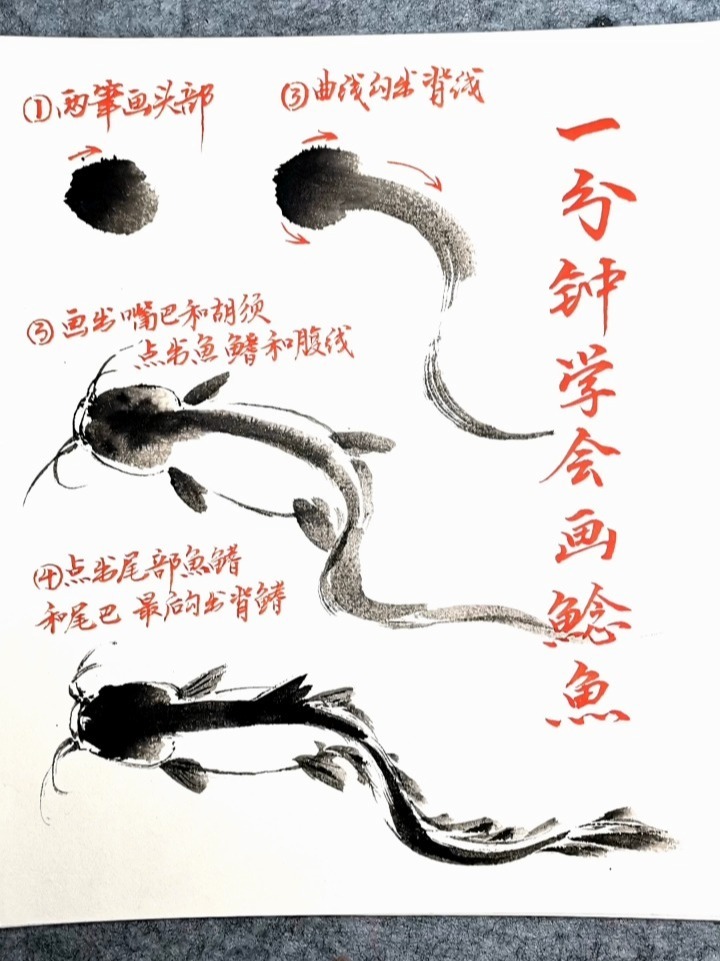 ①两筆画头部
③曲线勾出背线
③画出嘴巴和胡须
点出魚鰭和腹线
④点出尾部魚鰭
和尾巴 最后勾出背鰭
一分钟学会画鯰魚